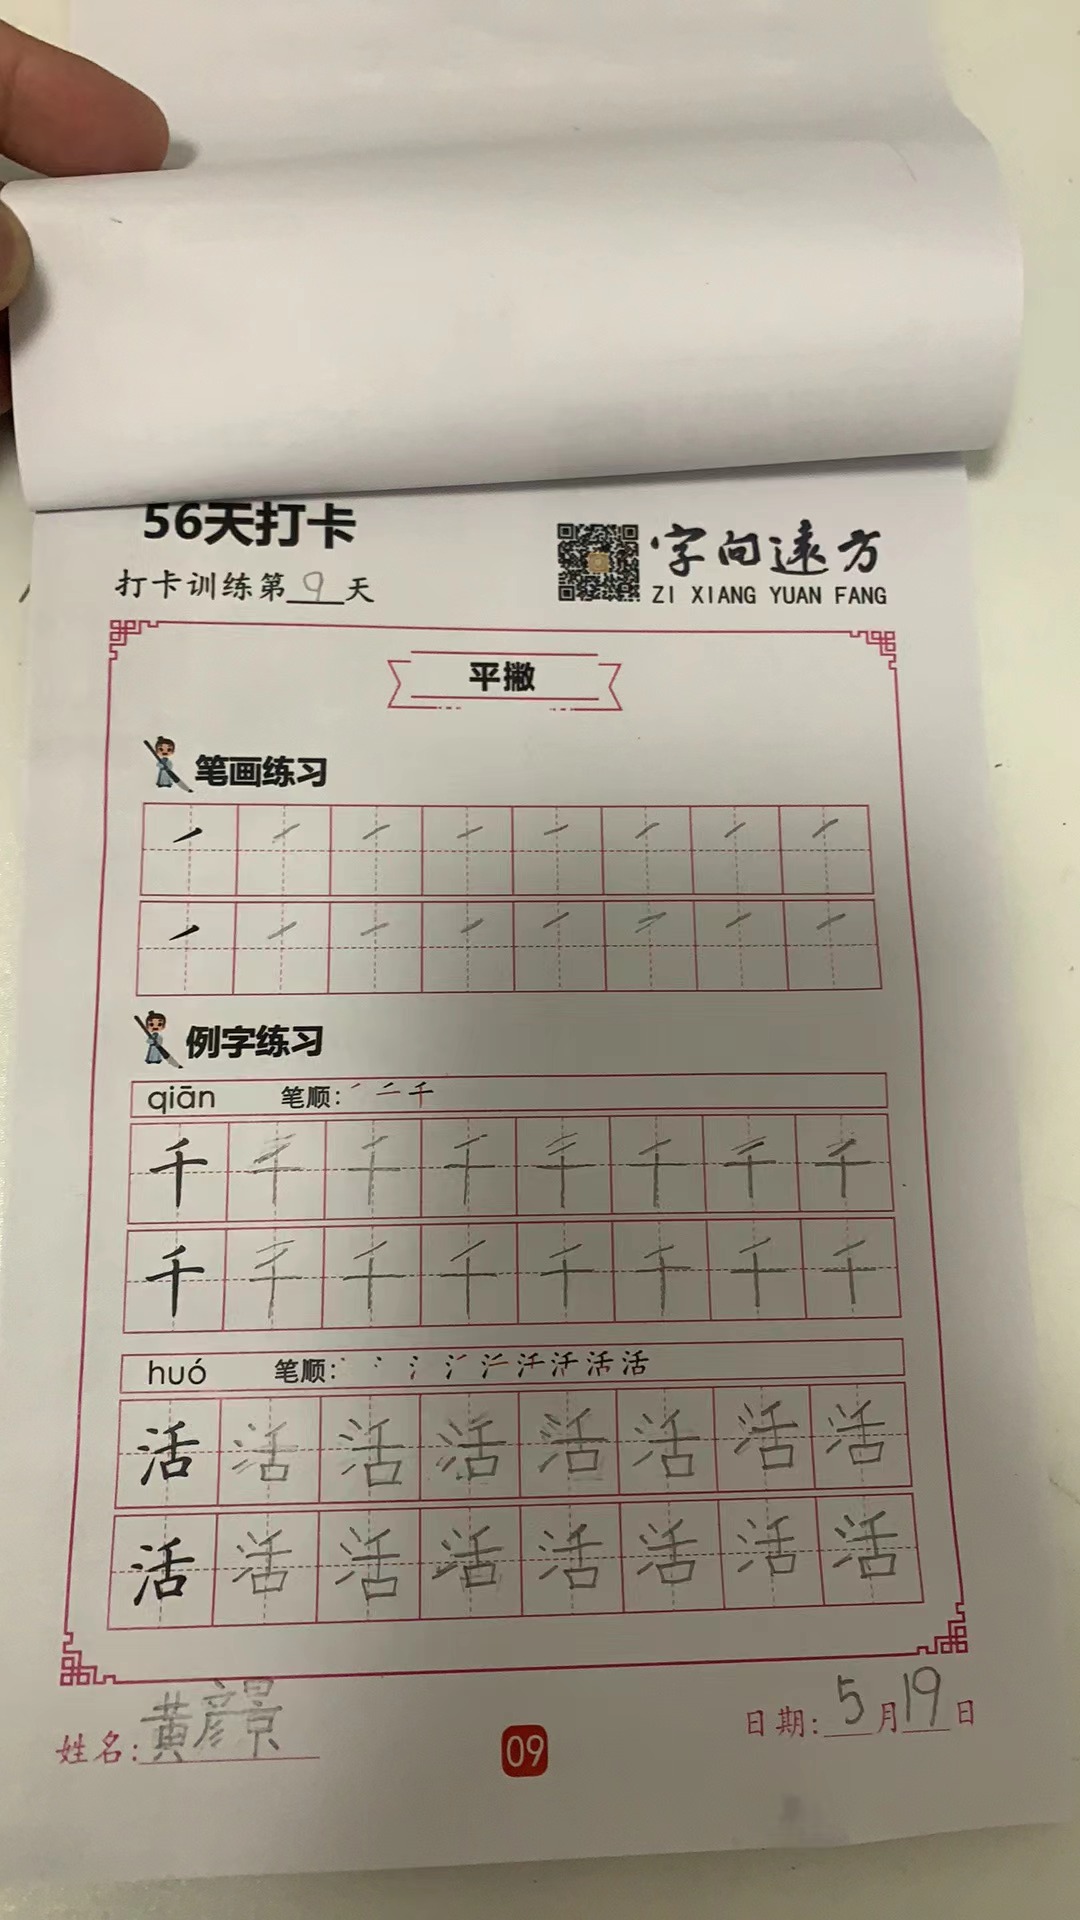 56天打卡
字向远方
打卡训练第9天
ZI XIANG YUAN FANG
平撇
笔画练习
例字练习
qiān 笔顺:
千 千 千 千 千 千 千 千
千 千 千 千 千 千 千 千
huó 笔顺:
活 活 活 活 活 活 活 活
活 活 活 活 活 活 活 活
姓名:黄彦景
09
日期:5月19日